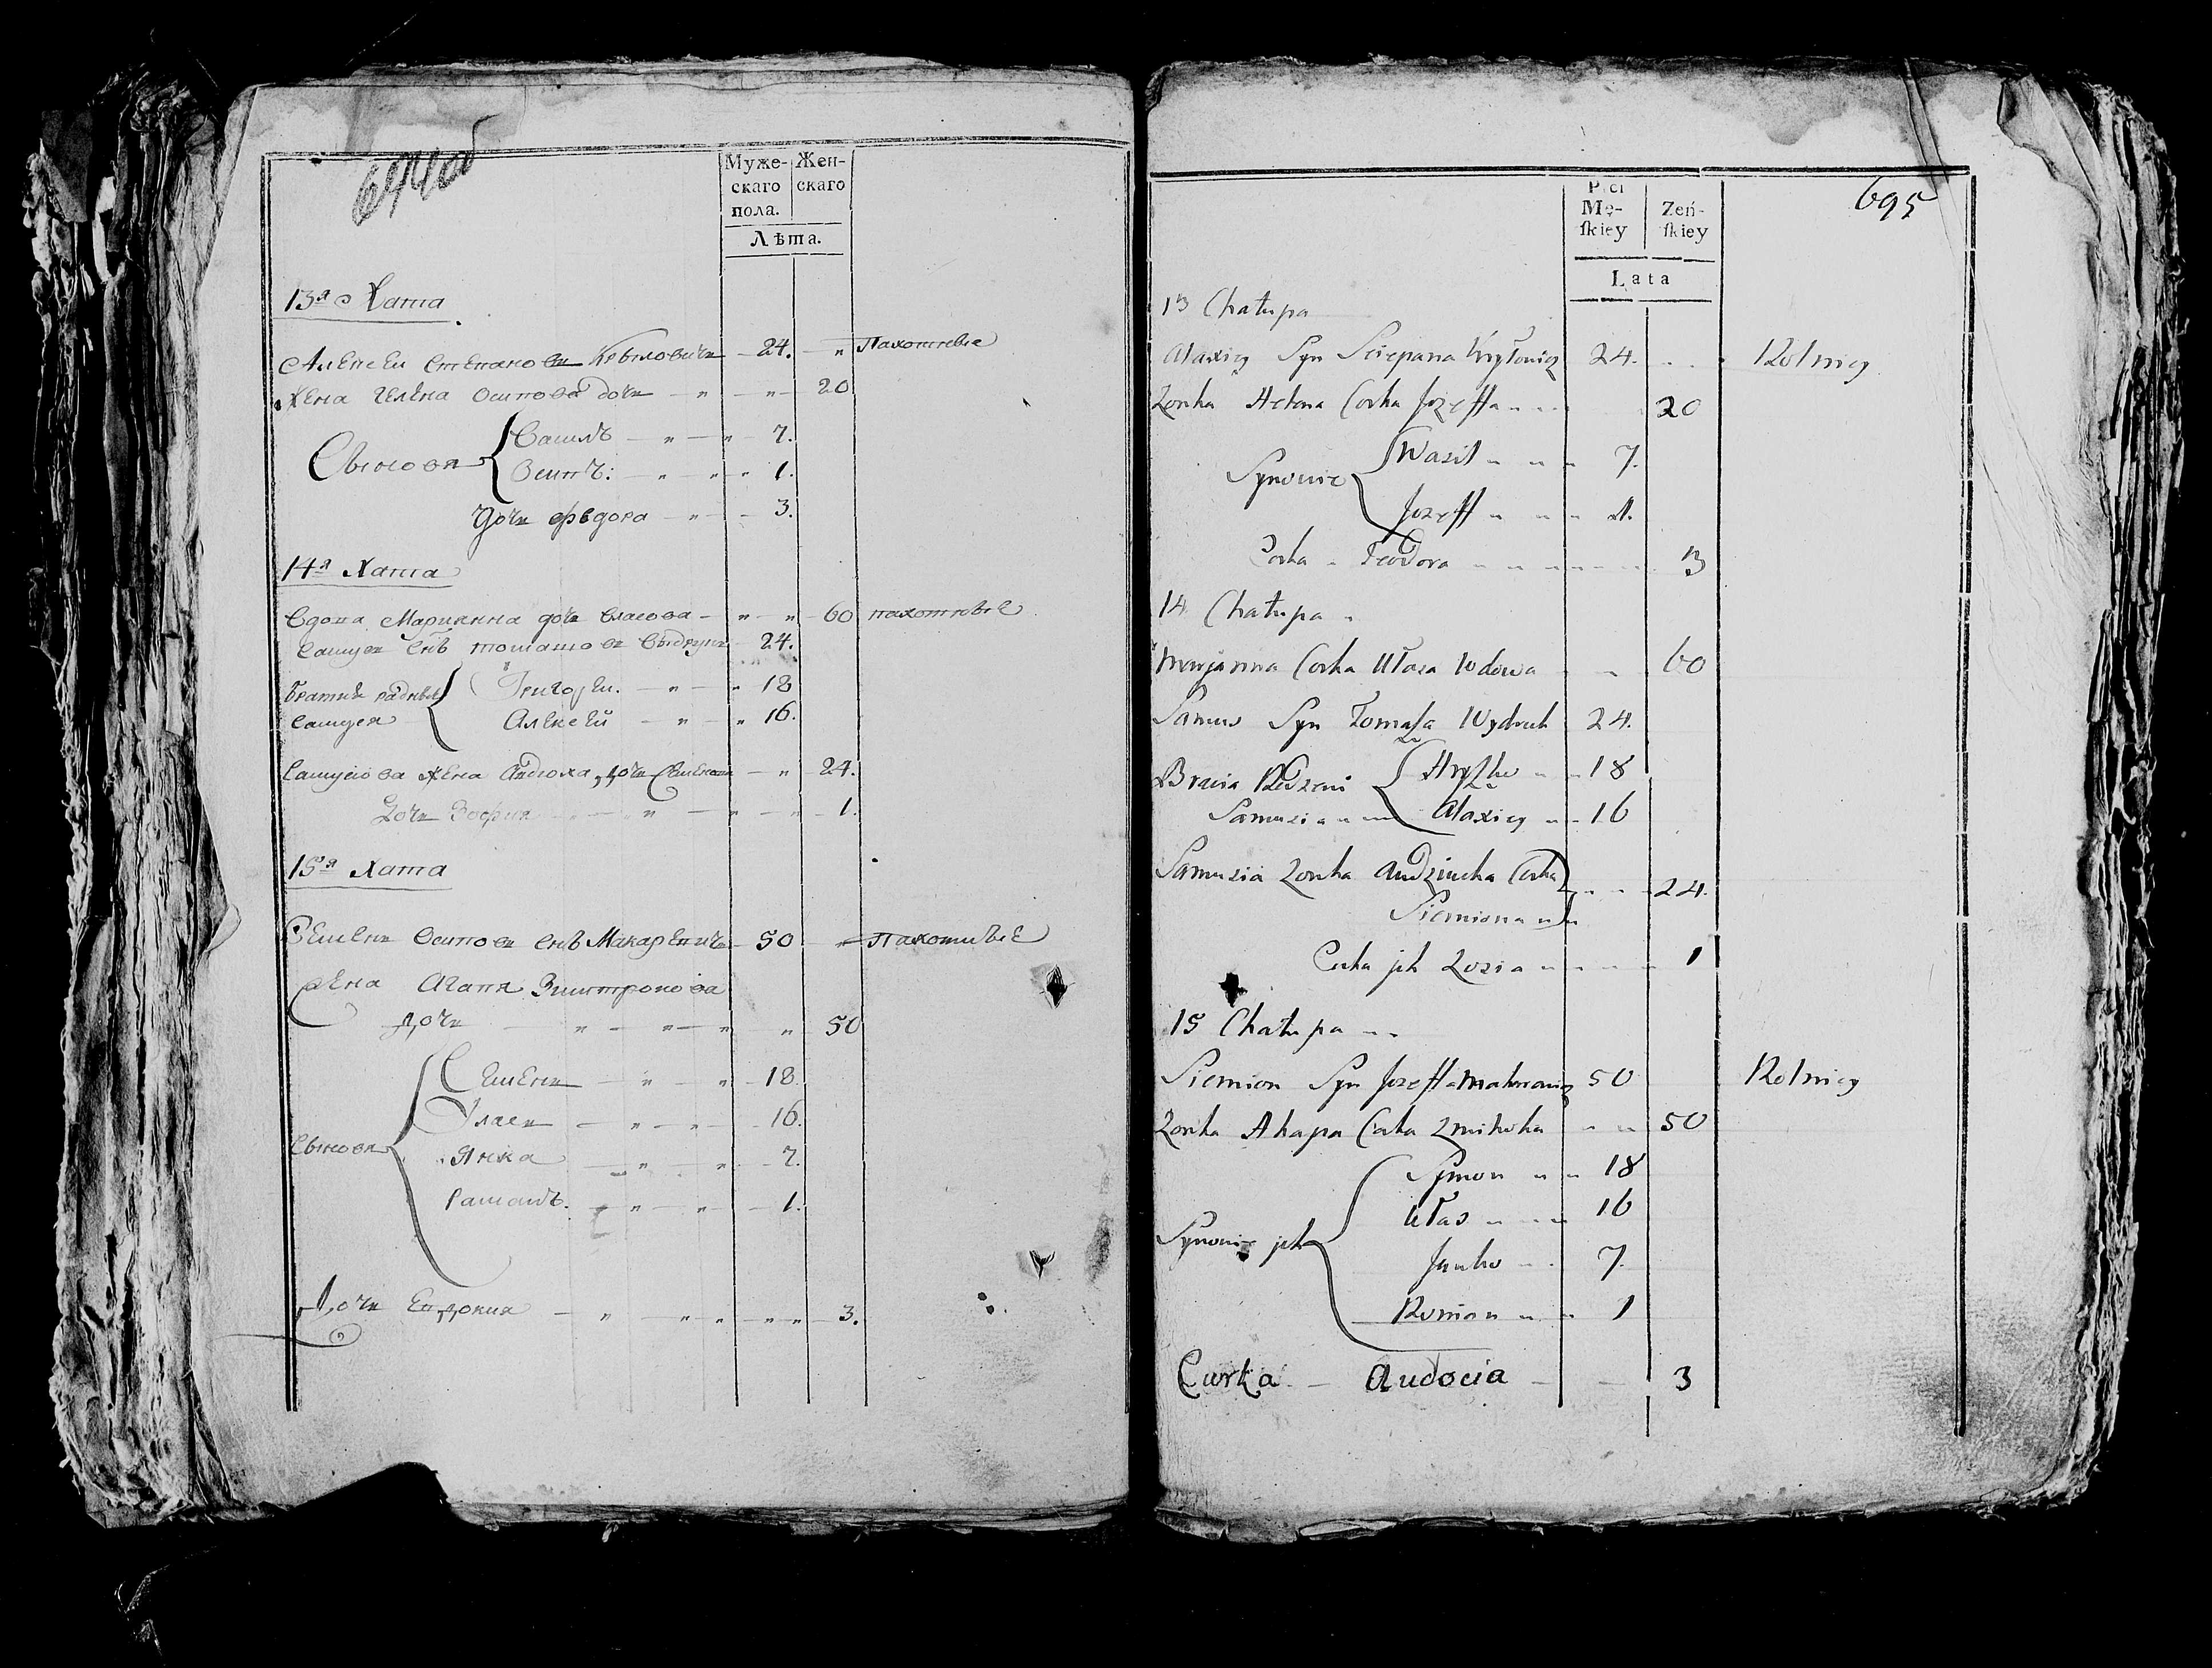 694об
Муже-
скаго
пола.
Жен-
скаго
Лѣта.
13я Хата
Алексеи Степановъ Крыловичъ 24. " Пахотные
Жена Гелена Осипова дочь " " 20
Сынови
Василъ " " 7.
Осипъ: " " " 1.
Дочь Ѳедора " 3.
14я Хата
Вдова Марианна дочь Власова " " 60 пахотные
Самуси снъ Томашовъ Выдрукъ 24.
Братия радныя
Самуся
Григореи. " " 18
Алексей " " 16.
Самусова жена Авдюха, дочь Семенова " 24.
Дочь Зофия " " " 1.
15я Хата
Семенъ Осиповъ снъ Макаревичъ 50 " Пахотные
Жена Агапа Змитрокова
Дочь " " " " 50
Сынови
Семенъ " " 18.
Уласъ " " 16.
Янка " " 7.
Раманъ. " " 1.
Дочь Евдокия " " " " " 3.
695
Płci
Mę-
skiey
Zeń-
skiey
Lata
13 Chałupa
Alaxiey Syn Sciepana Kryłowicz 24. Rolnicy
Zonka Helena Corka Jozeffa 20
Synowie
Wasil 7.
Jozeff 1.
Corka Teodora 3
14 Chałupa
Maryanna Corka Ułasa Wdowa 60
Samus Syn Tomasza Wydruk 24.
Bracia Rodzeni
Samusia
Hryszko 18
Alaxiey 16
Samusia Zonka Audziucha Corka
Siemiona 24.
Corka jch Zosia 1
15 Chałupa
Siemion Syn Jozeffa Makarewicz 50 Rolnicy
Zonka Ahapa Corka Zmitroka 50
Synowie jch
Symon 18
Ułas 16
Janko 7.
Roman 1
Curka Audocia 3